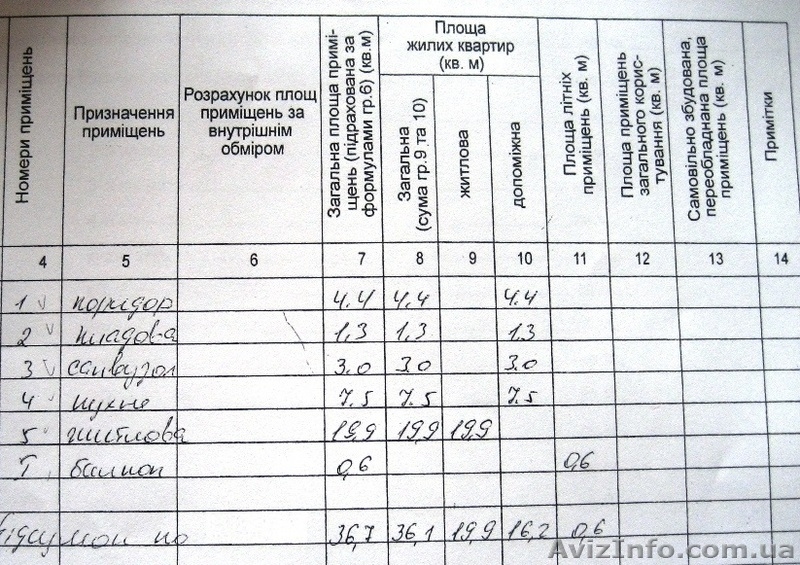 Номери приміщень
Призначення
приміщень
Розрахунок площ
приміщень за
внутрішнім
обміром
Загальна площа примі-
щень (підрахована за
формулами гр.6) (кв.м)
Площа
жилих квартир
(кв. м)
Загальна
(сума гр.9 та 10)
житлова
допоміжна
Площа літніх
приміщень (кв. м)
Площа приміщень
загального корис-
тування (кв. м)
Самовільно збудована,
переобладнана площа
приміщень (кв. м)
Примітки
4 5 6 7 8 9 10 11 12 13 14
1 коридор 4.4 4,4 4.4
2 кладова 1,3 1,3 1.3
3 санвузол 3.0 3.0 3.0
4 кухня 7.5 7.5 7.5
5 житлова 19,9 19,9 19,9
I балкон 0,6 0,6
підсумок по 36,7 36,1 19,9 16,2 0,6
AvizInfo.com.ua